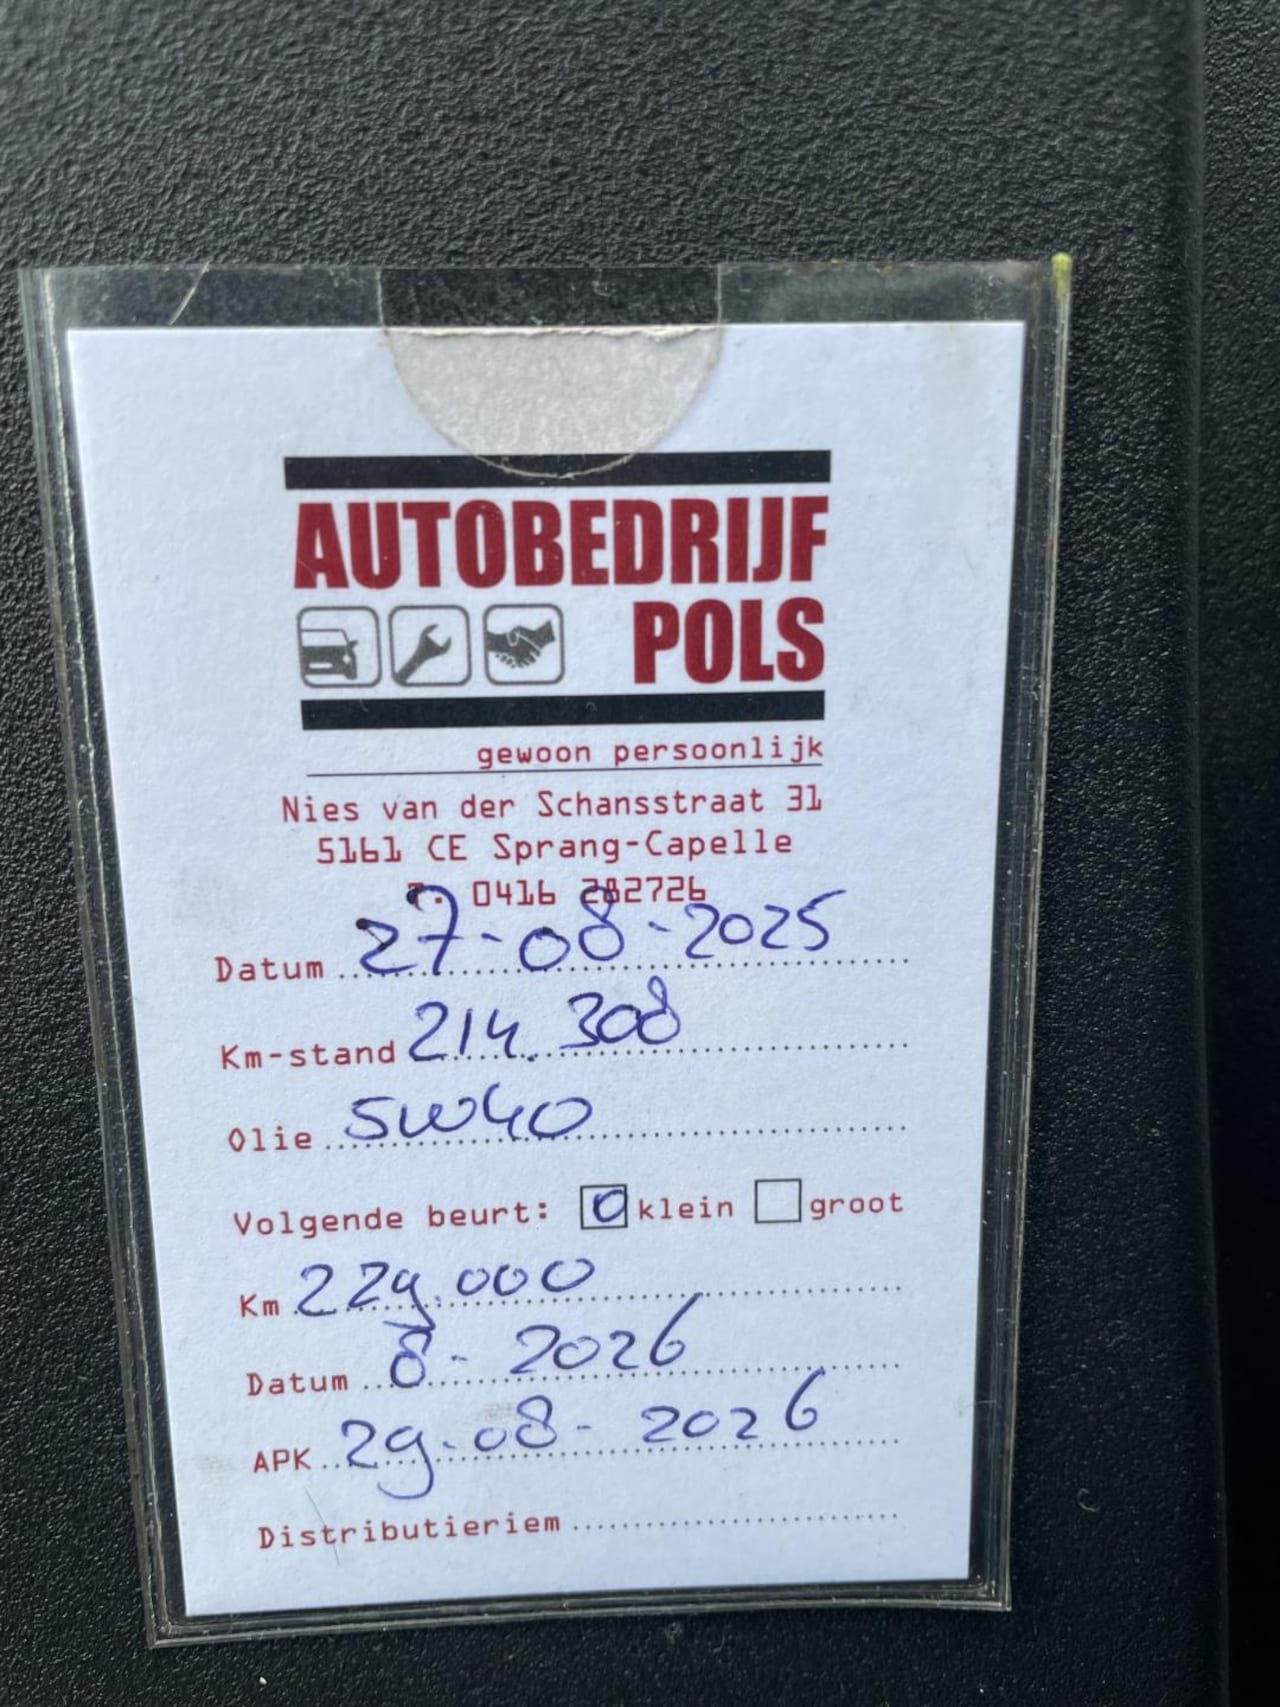 AUTOBEDRIJF
POLS
gewoon persoonlijk
Nies van der Schansstraat 31
5161 CE Sprang-Capelle
T. 0416 282726
Datum 27-08-2025
Km-stand 214.308
Olie 5W40
Volgende beurt: klein groot
Km 229.000
Datum 8-2026
APK 29-08-2026
Distributieriem